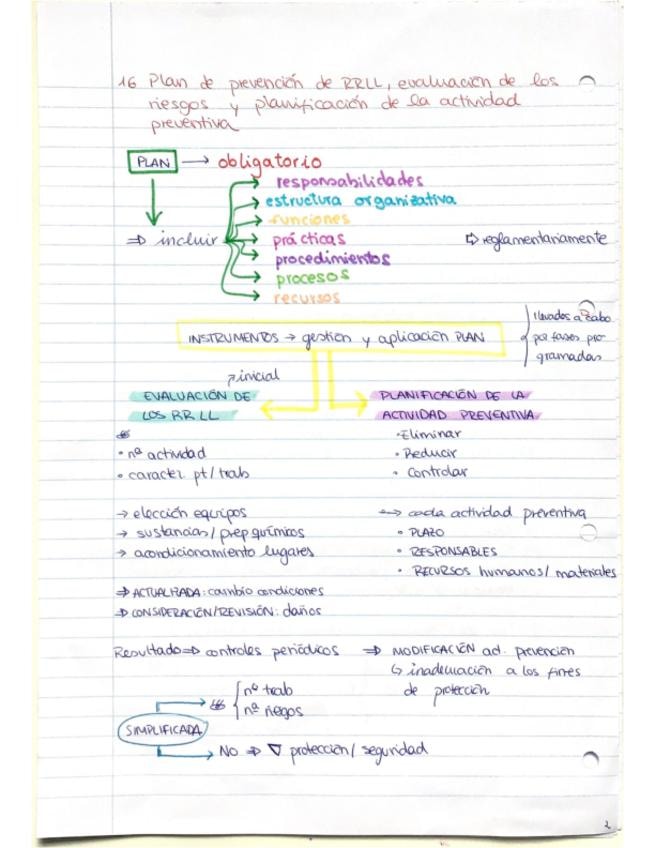 16 Plan de prevención de RRLL, evaluación de los
riesgos y planificación de la actividad
preventiva
PLAN → obligatorio
responsabilidades
estructura organizativa
funciones
⇒ incluir prácticas ⇨ reglamentariamente
procedimientos
procesos
recursos
INSTRUMENTOS → gestión y aplicación PLAN
llevados a cabo
por fases pro
gramadas
inicial
EVALUACIÓN DE
LOS RRLL
• nº actividad
• caracter. pt/trab
→ elección equipos
→ sustancias/prep químicos
→ acondicionamiento lugares
⇒ ACTUALIZADA: cambio condiciones
⇒ CONSIDERACIÓN/REVISIÓN: daños
PLANIFICACIÓN DE LA
ACTIVIDAD PREVENTIVA
• Eliminar
• Reducir
• Controlar
→ cada actividad preventiva
• PLAZO
• RESPONSABLES
• RECURSOS humanos/materiales
Resultado ⇒ controles periódicos ⇒ MODIFICACIÓN ad. prevención
↳ inadecuación a los fines
de protección
SIMPLIFICADA
nº trab
nº riegos
NO ⇒ ∇ protección/seguridad
2